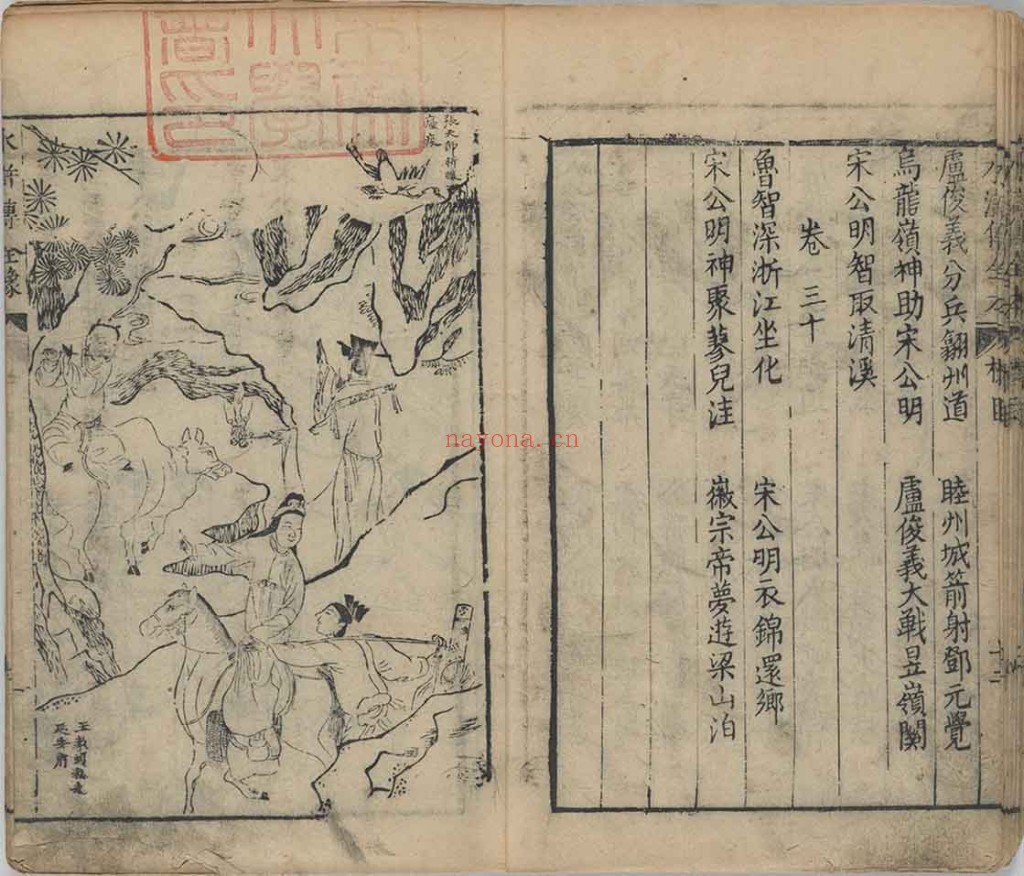 盧俊義分兵歙州道 睦州城箭射鄧元覺
烏龍嶺神助宋公明 盧俊義大戰昱嶺關
宋公明智取清溪
卷三十
魯智深浙江坐化 宋公明衣錦還鄉
宋公明神聚蓼兒洼 徽宗帝夢遊梁山泊
張天師祈禳
瘟疫
水滸傳全像
王教頭私走
延安府
nayona.cn